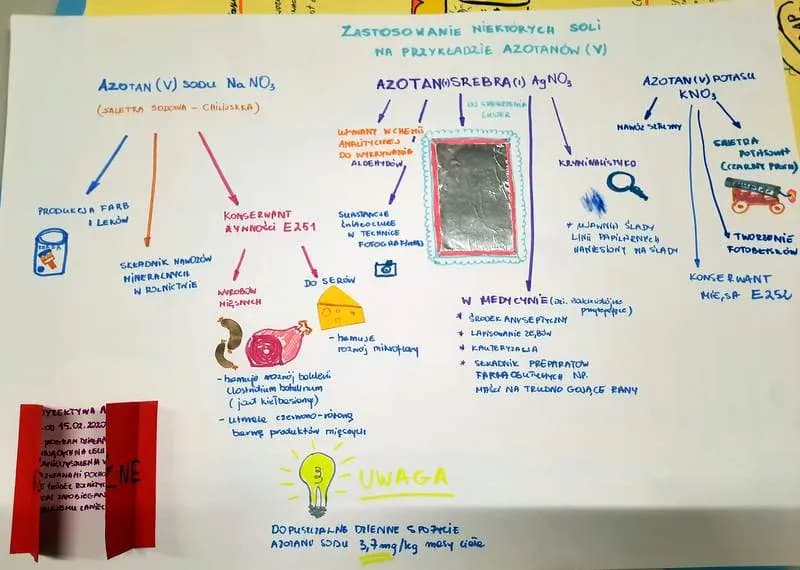 ZASTOSOWANIE NIEKTÓRYCH SOLI
NA PRZYKŁADZIE AZOTANÓW (V)
AZOTAN (V) SODU NaNO3
(SALETRA SODOWA - CHILIJSKA)
PRODUKCJA FARB
I LEKÓW
SKŁADNIK NAWOZÓW
MINERALNYCH
W ROLNICTWIE
KONSERWANT
ŻYWNOŚCI E251
WYROBÓW
MIĘSNYCH
- hamuje rozwój bakterii
clostridium botulinum
(jad kiełbasiany)
- utrwala czerwono-różową
barwę produktów mięsnych
DO SERÓW
- hamuje
rozwój mikroflory
AZOTAN(V) SREBRA(I) AgNO3
UŻYWANY W CHEMII
ANALITYCZNEJ
DO WYKRYWANIA
ALDEHYDÓW
SUBSTANCJE
ŚWIATŁOCZUŁE
W TECHNICE
FOTOGRAFICZNEJ
DO SREBRZENIA
LUSTER
W MEDYCYNIE
* ŚRODEK ANTYSEPTYCZNY
* LAPISOWANIE ZĘBÓW
* KAUTERYZACJA
* SKŁADNIK PREPARATÓW
FARMACEUTYCZNYCH NP.
MAŚCI NA TRUDNO GOJĄCE RANY
KRYMINALISTYKA
* UJAWNIA ŚLADY
LINII PAPILARNYCH
NANIESIONY NA ŚLADY
AZOTAN (V) POTASU
KNO3
NAWÓZ SZTUCZNY
SALETRA
POTASOWA
(CZARNY PROCH)
TWORZENIE
FOTOBŁYSKÓW
KONSERWANT
MIĘSA E252
DYREKTYWA A
OD 15.02.2020
PROGRAM DZIAŁA
NE
UWAGA
DOPUSZCZALNE DZIENNE SPOŻYCIE
AZOTANU SODU 3,7mg/kg masy ciała